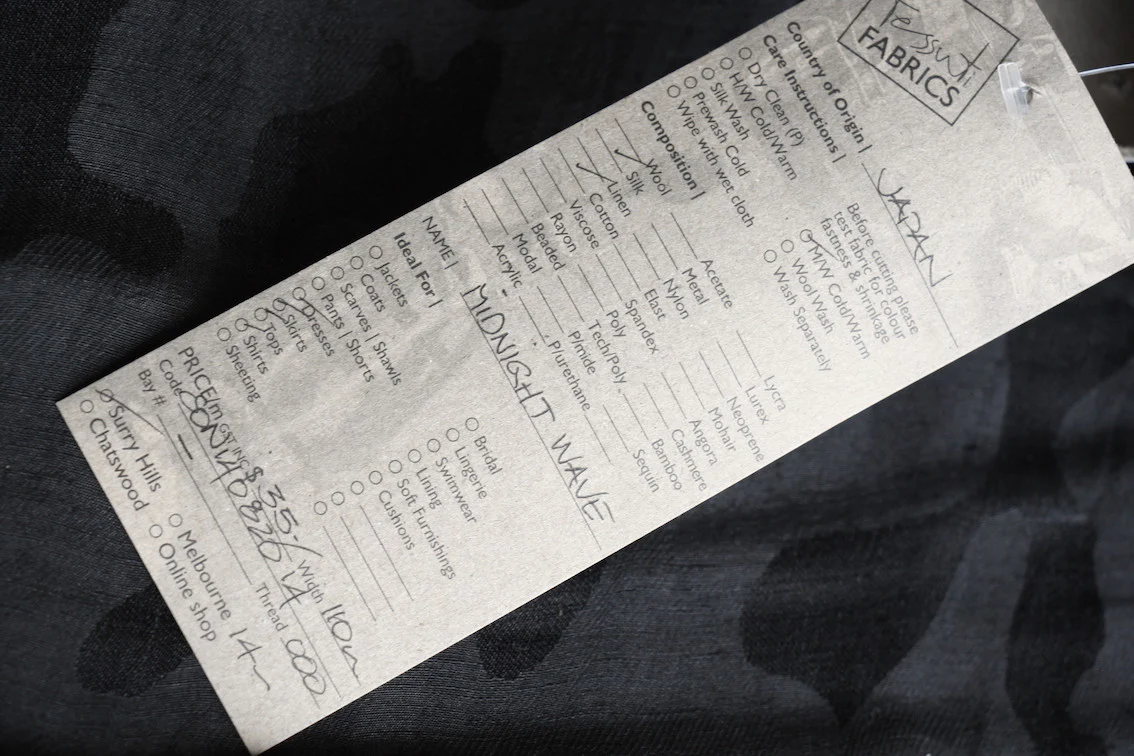 Tessuti
FABRICS
Country of Origin | JAPAN
Care Instructions |
Dry Clean (P)
H/W Cold/Warm
Silk Wash
Prewash Cold
Wipe with wet cloth
Before cutting please
test fabric for colour
fastness & shrinkage
M/W Cold/Warm
Wool Wash
Wash Separately
Composition |
Wool
Silk
Linen
Cotton
Viscose
Rayon
Beaded
Modal
Acrylic
Acetate
Metal
Nylon
Elast
Spandex
Poly
Tech/Poly
P/mide
P/urethane
Lycra
Lurex
Neoprene
Mohair
Angora
Cashmere
Bamboo
Sequin
NAME | MIDNIGHT WAVE
Ideal For |
Jackets
Coats
Scarves | Shawls
Pants | Shorts
Dresses
Skirts
Tops
Shirts
Sheeting
Bridal
Lingerie
Swimwear
Lining
Soft Furnishings
Cushions
PRICE/m GST INC $ 35.- / Width 110cm
Code Thread
Bay # –
Surry Hills
Chatswood
Melbourne 14m
Online shop